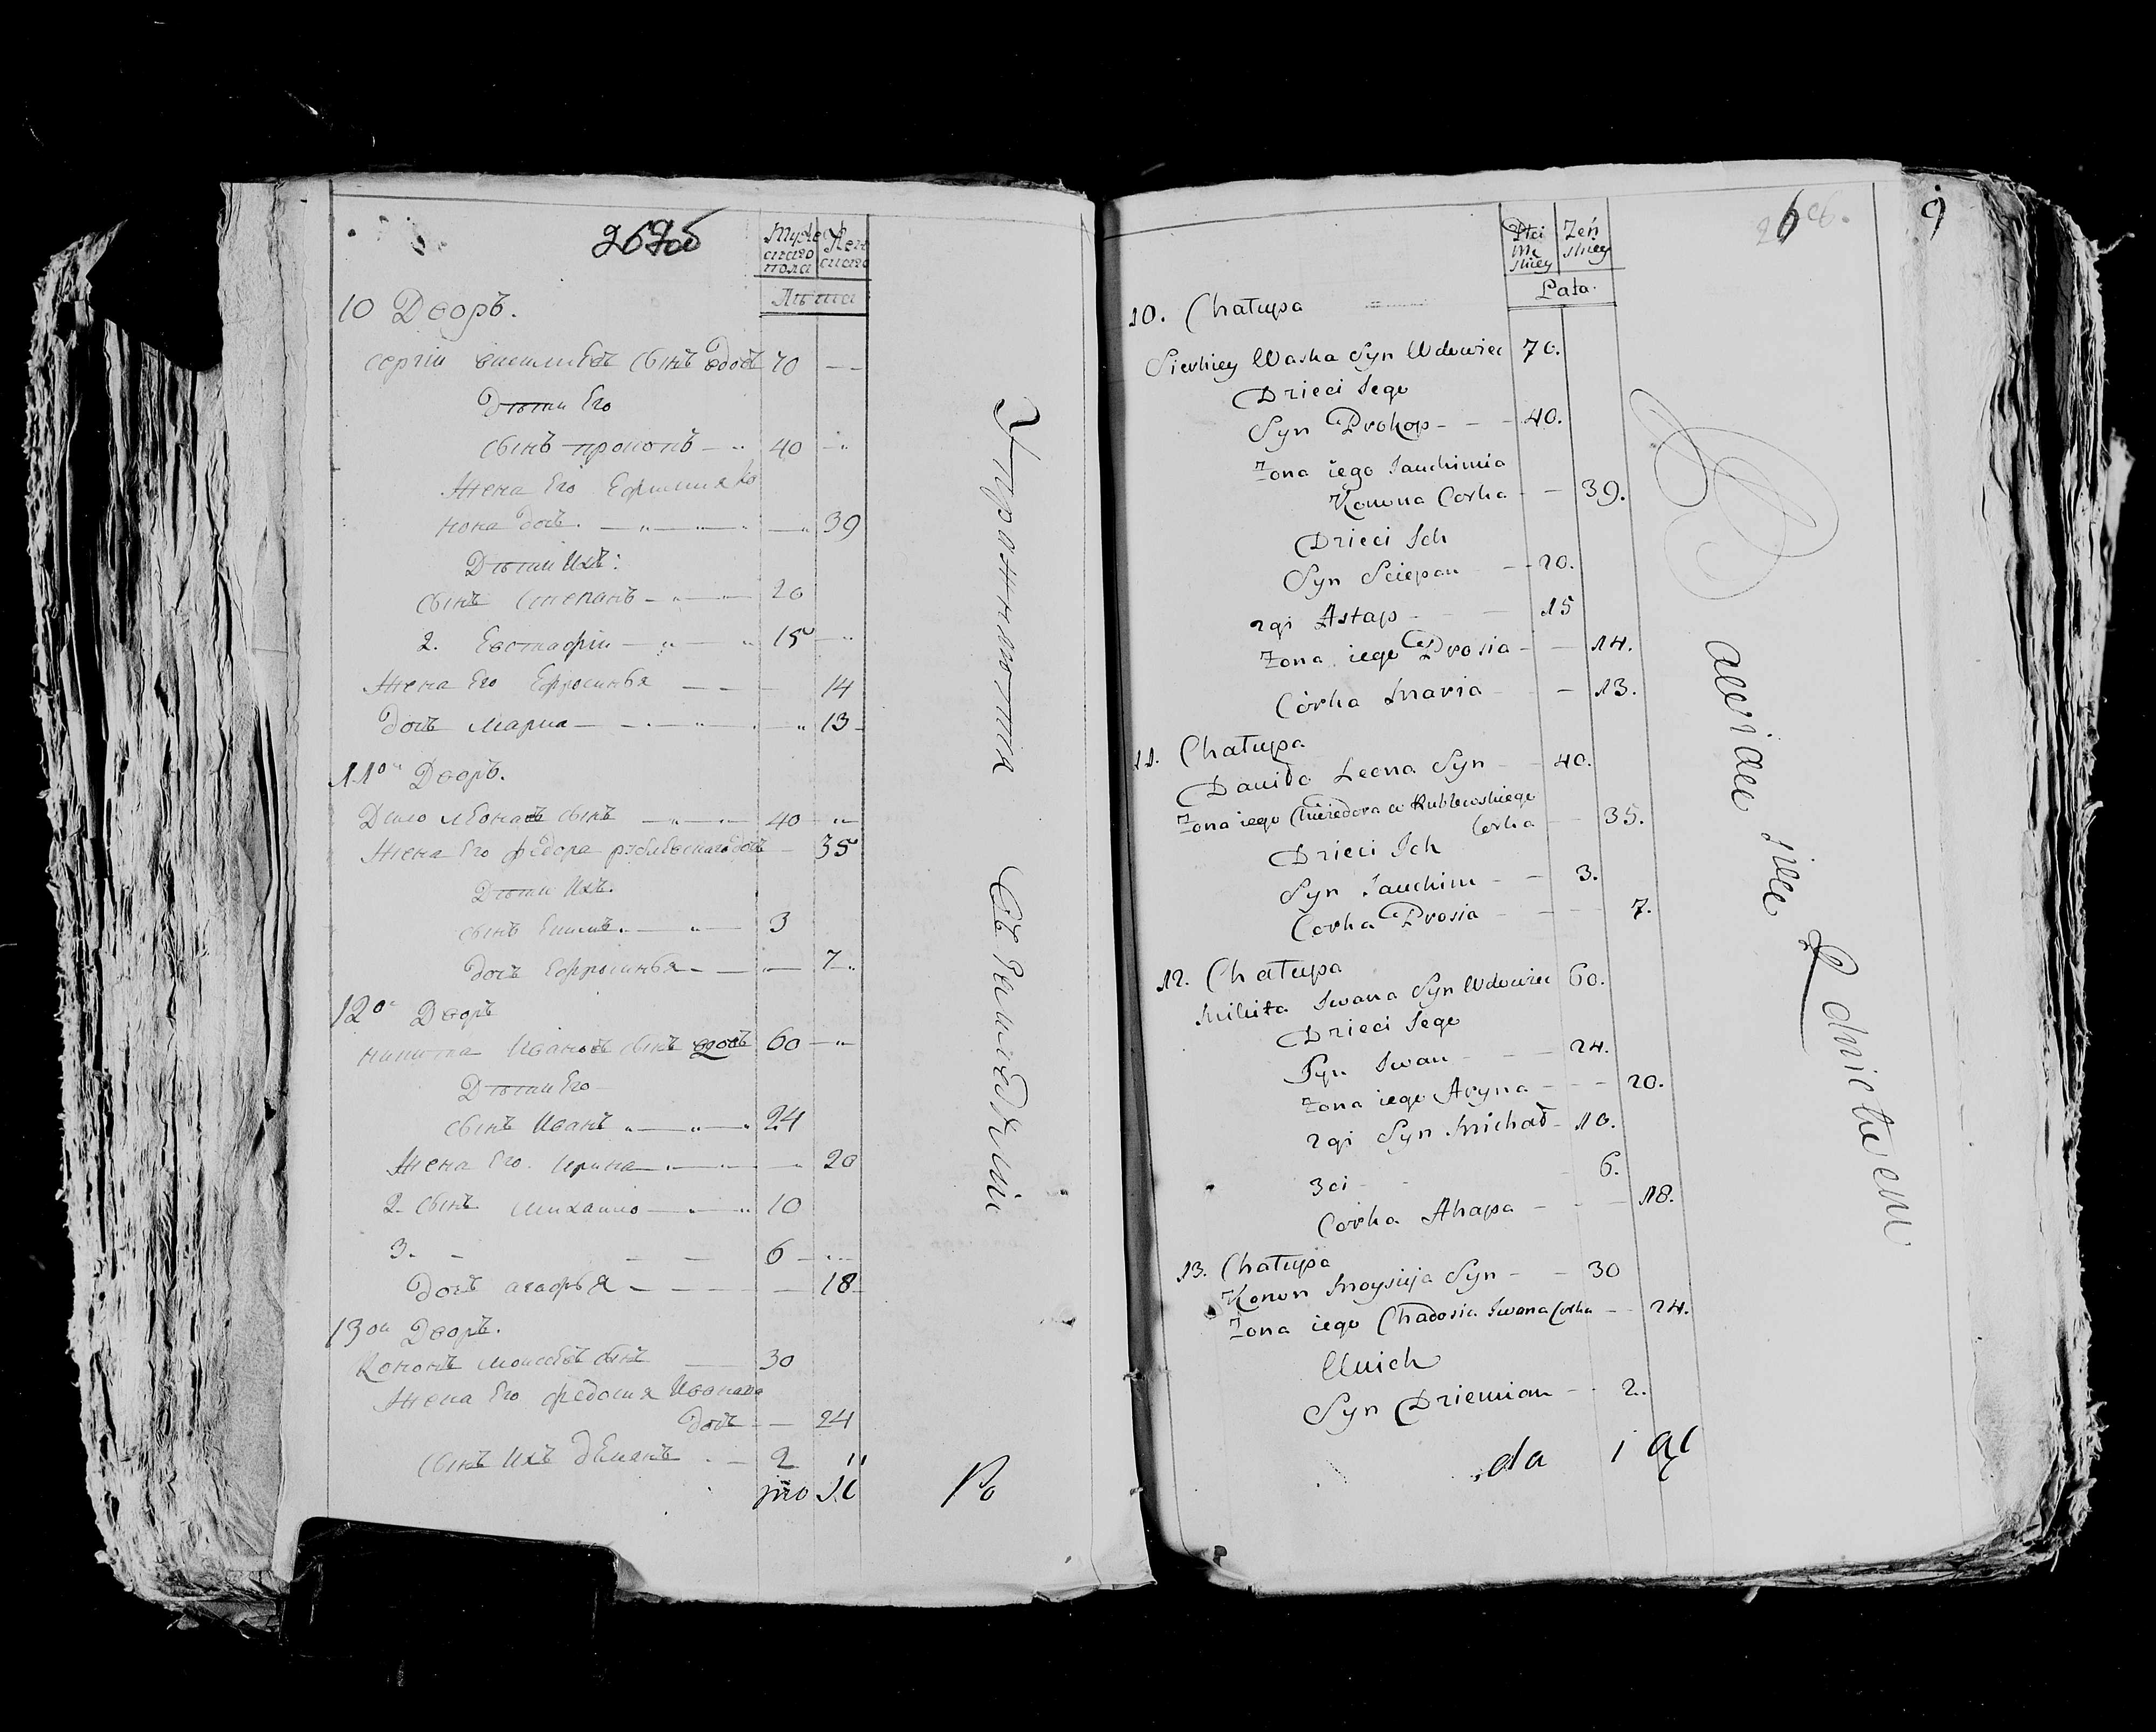 Муж
скаго
пола
Жен
скаго
Лѣта
10 Дворъ.
Сергѣй сынъ вдовъ 70 —
Дѣти Его
сынъ Прокопъ — 40 —
Жена Его Ефимия Ко
нона дочь. — 39
Дѣти Ихъ:
сынъ Степанъ — 20
2. Евстафiи — 15 —
Жена Его Ефросинья — 14
дочь Мариа — 13
11ои Дворъ.
Леоновъ сынъ — 40 —
Жена Его Федора дочь — 35
Дѣти Ихъ.
сынъ — 3
дочь Ефросинья — 7
12ои Дворъ
Никита Ивановъ сынъ вдовъ 60 —
Дѣти Его
сынъ Иванъ — 24
Жена Его Ирина — 20
2. сынъ Михаило — 10
3. — 6 —
дочь Агафья — 18
13ои Дворъ.
Кононъ Моисеевъ сынъ — 30
Жена Его Федосия Иванова
дочь — 24
сынъ Ихъ Демянъ — 2
По
Płci
Mę
skiey
Żeń
skiey
Lata
10. Chałupa
Sierhiey Waska Syn Wdowiec 70.
Dzieci Jego
Syn Prokop - - - 40.
Zona iego Jauchimia
Konona Corka - - 39.
Dzieci Ich
Syn Sciepan - - 20.
2gi Astap - - 15
Zona iego Prosia - - 14.
Córka Maria - - 13.
11. Chałupa
Daniło Leona Syn - - 40.
Zona iego Chwiedora Rublewskiego
Corka - - 35.
Dzieci Ich
Syn Jauchim - - 3.
Corka Prosia - - - 7.
12. Chałupa
Mikita Iwana Syn Wdowiec 60.
Dzieci Jego
Syn Iwan - - - 24.
Zona iego Aryna - - - 20.
2gi Syn Michał - 10.
3ci - - 6.
Corka Ahapa - - - 18.
13. Chałupa
Konon Moysieja Syn - - 30
Zona iego Chadosia Iwana Corka - - 24.
U nich
Syn Dziemian - - 2.